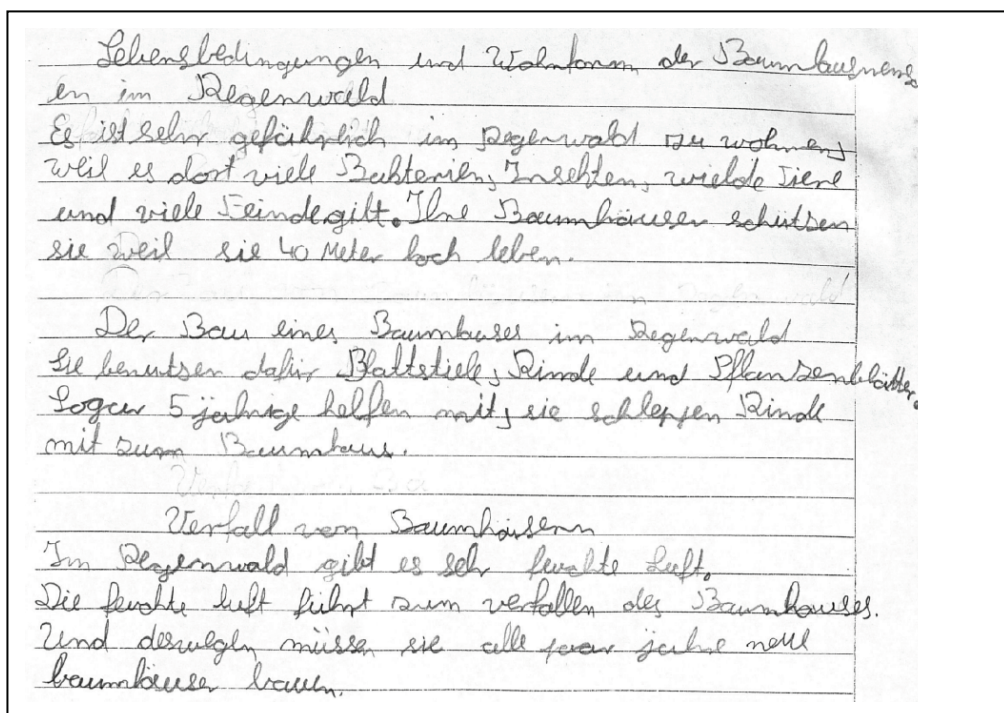 Lebensbedingungen und Wohnform der Baummens
en im Regenwald
Es ist sehr gefährlich im Regenwald zu wohnen,
weil es dort viele Bakterien, Insekten, wielde Tiere
und viele Feinde gibt. Ihre Baumhäuser schützen
sie weil sie 40 Meter hoch leben.
Der Bau eines Baumhauses im Regenwald
Sie benutsen dafür Blattstiele, Rinde und Pflanzenblätter.
Sogar 5 jährige helfen mit, sie schleppen Rinde
mit zum Baumhaus.
Verfall von Baumhäusern
Im Regenwald gibt es sehr feuchte Luft.
Die feuchte luft führt zum verfallen des Baumhauses.
Und deswegen müssen sie alle paar jahre neue
baumhäuser bauen.